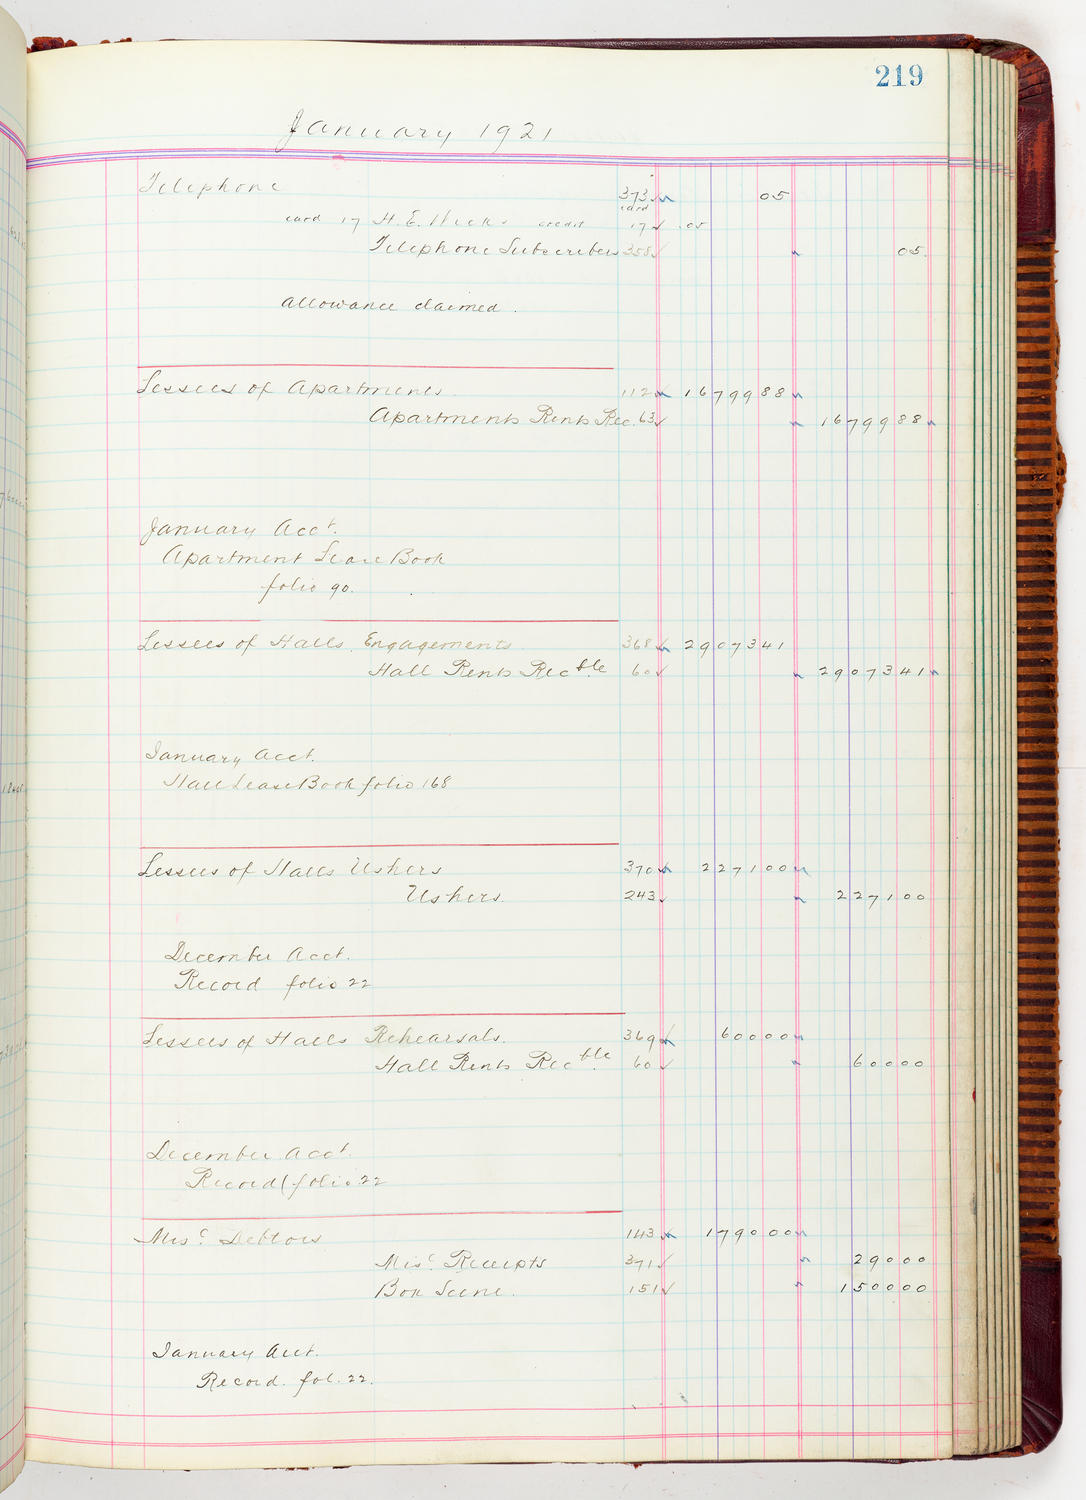 219
January 1921
Telephone 373 05
card
card 17 H. E. Hicks credit 17 .05
Telephone Subscribers 358 05.
allowance claimed.
Lessees of Apartments. 112 1679988
Apartments Rents Rec. 63 1679988
January Acct.
Apartment Lease Book
folio 90.
Lessees of Halls. Engagements 368 2907341
Hall Rents Recble 60 2907341
January Acct.
Hall Lease Book folio 168
Lessees of Halls Ushers 370 227100
Ushers. 243 227100
December Acct.
Record folio 22
Lessees of Halls Rehearsals. 369 60000
Hall Rents Recble 60 60000
December Acct.
Record folio 22
Misc. Debtors 143 179000
Misc. Receipts 371 29000
Box Scene. 151 150000
January Acct.
Record. fol. 22.